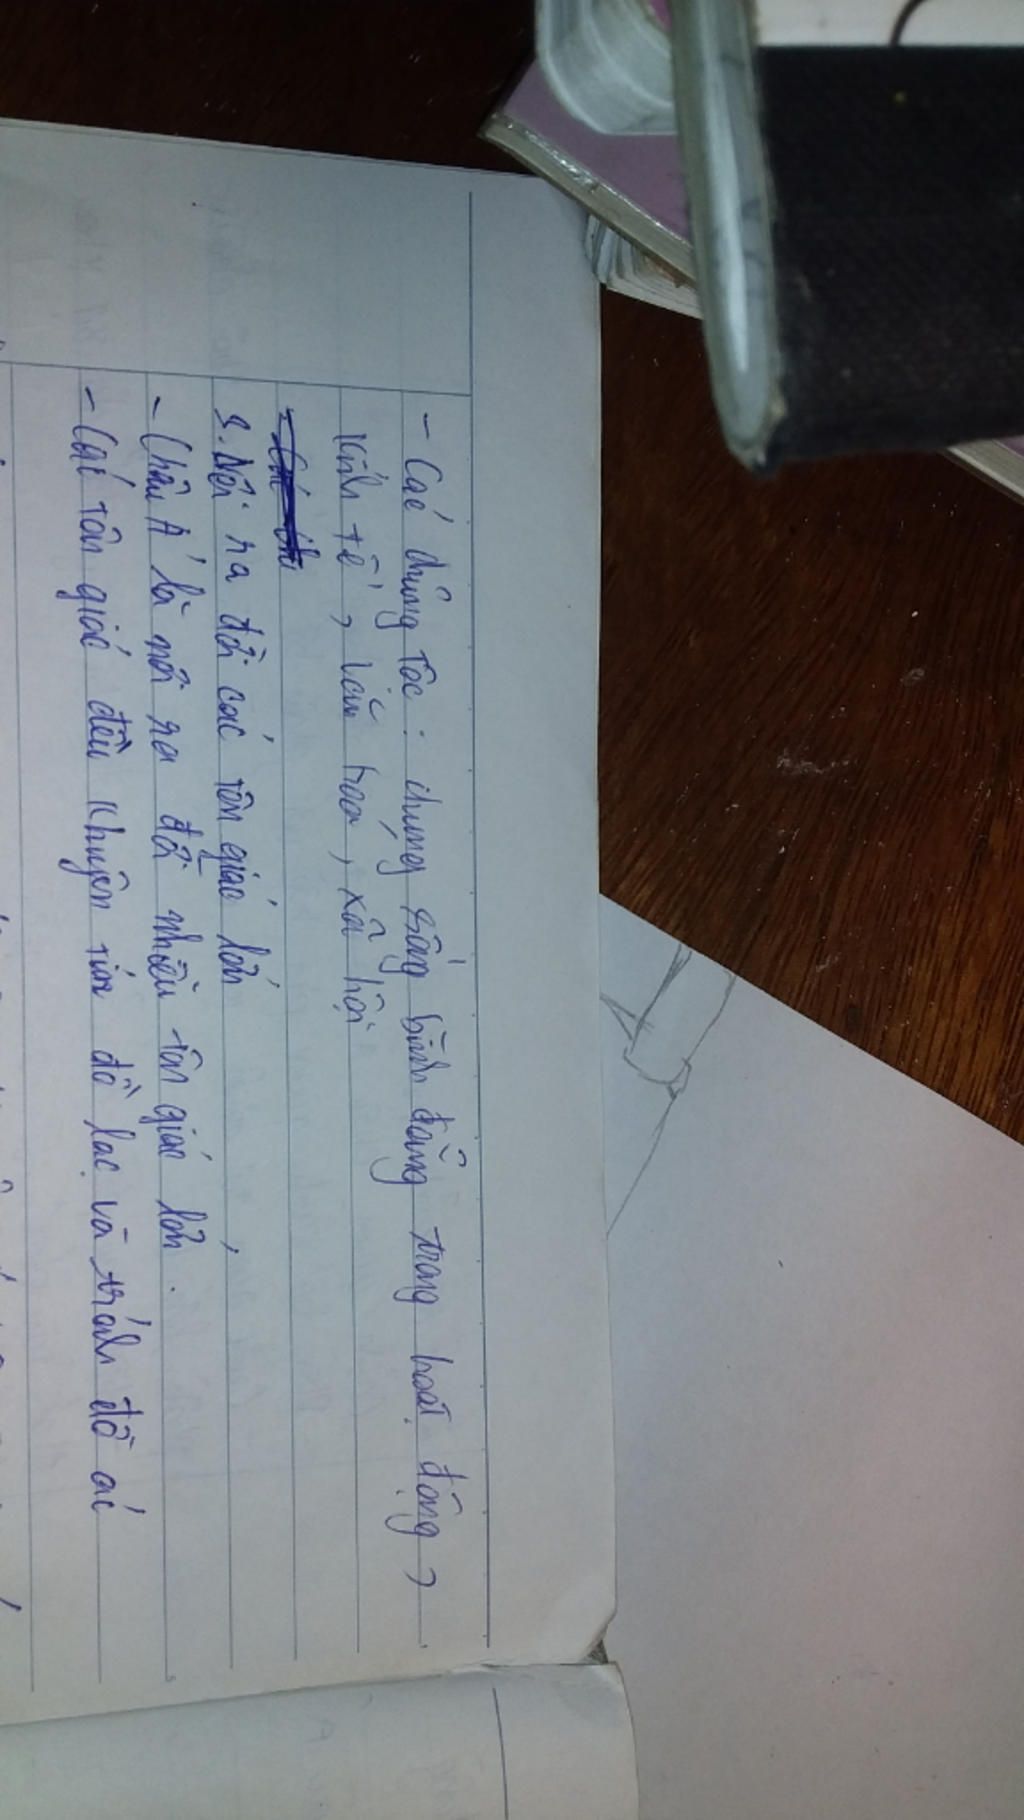 - Các chủng tộc : chung sống bình đẳng trong hoạt động,
kinh tế, văn hoá, xã hội
3. Nơi ra đời các tôn giáo lớn
- Châu Á là nơi ra đời nhiều tôn giáo lớn.
- Các tôn giáo đều khuyên tín đồ lạc và tránh đồ ác